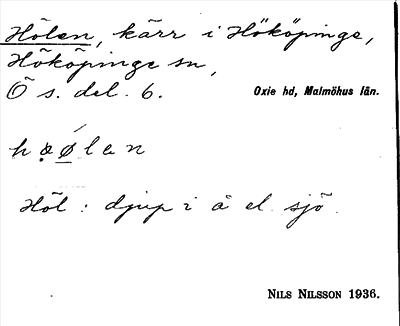 Hölen, kärr i Hököpinge,
Hököpinge sn,
Ö s. del. 6. Oxie hd, Malmöhus län.
hąø̨len
Höl : djup i å el. sjö.
NILS NILSSON 1936.